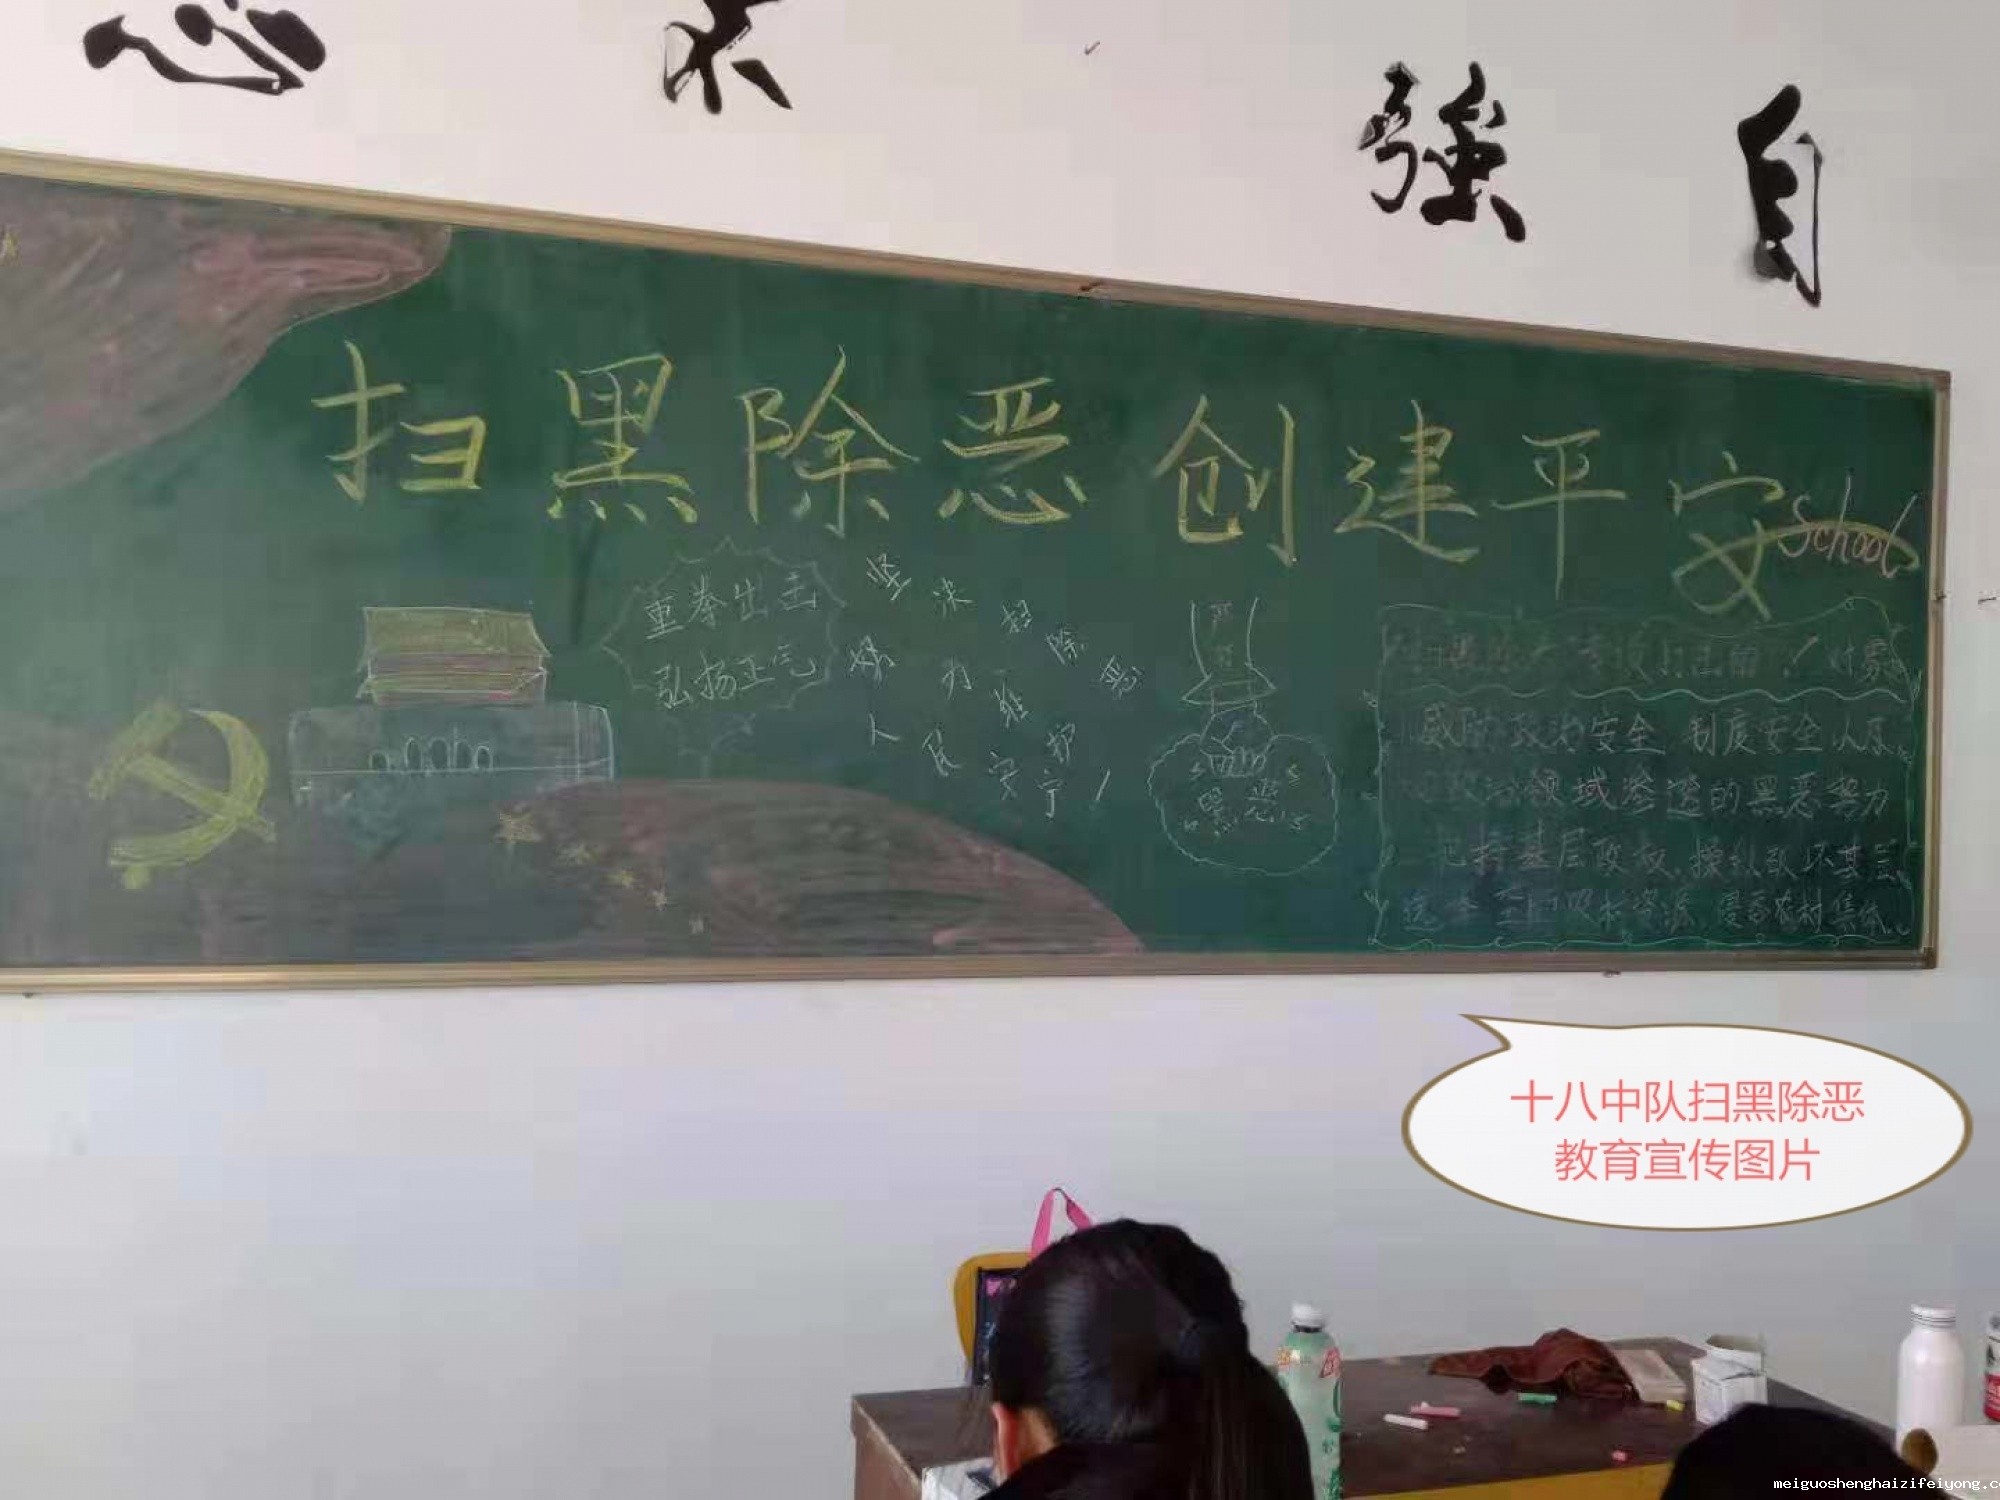 自強不息
扫黑除恶创建平安
School
重拳出击
弘扬正气
坚决扫除恶
势力维护
人民安宁！
黑恶
对象
威胁政治安全 制度安全以及
政治领域渗透的黑恶势力
把持基层政权,操纵破坏基层
选举 资源,侵吞农村集体
十八中队扫黑除恶
教育宣传图片
meiguoshenghaizifeiyong.c